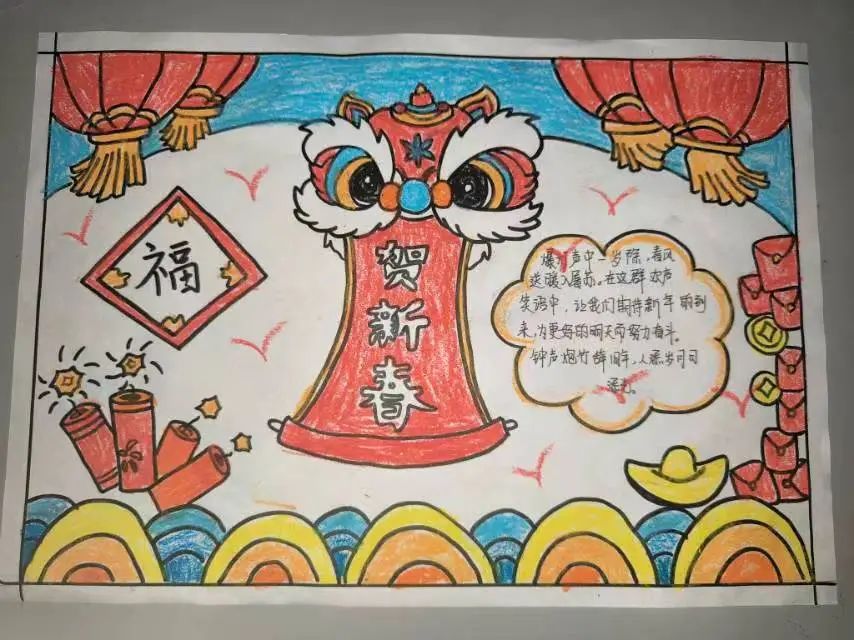 福
贺新春
爆竹声中一岁除,春风
送暖入屠苏。在这群欢声
笑语中,让我们期待新年的到
来,为更好的明天而努力奋斗。
钟声炮竹辞旧年,人